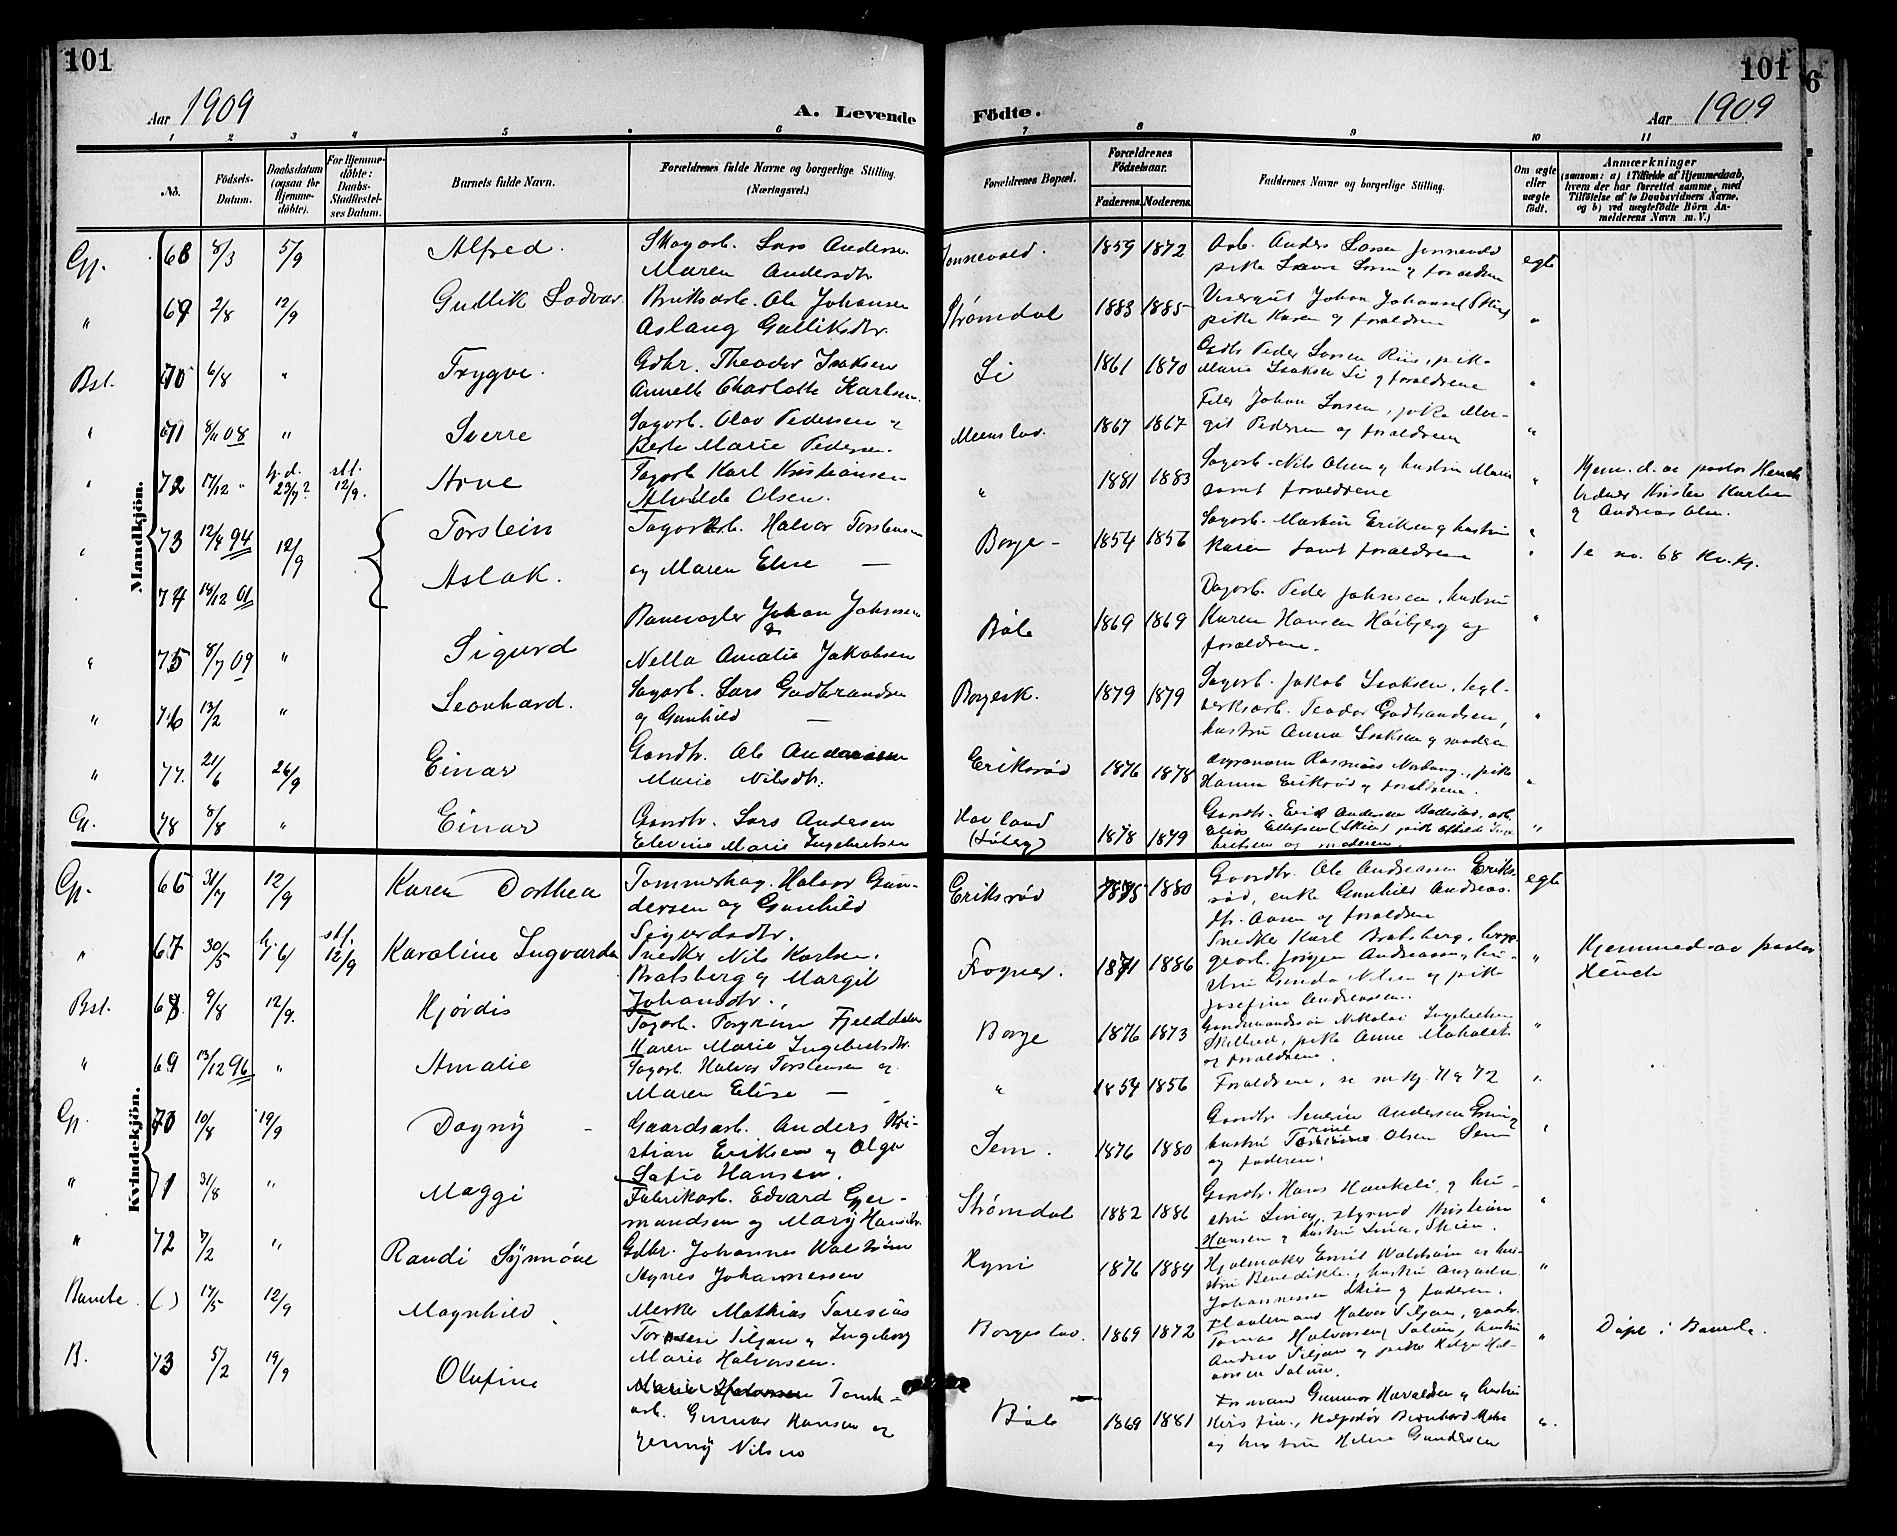 101
101
6
Aar 1909
A. Levende
Födte.
Aar 1909
1 2 3 4 5 6 7 8 9 10 11
No.
Födsels-
Datum.
Daabsdatum
(ogsaa for
Hjemme-
döbte).
For Hjemme-
döbte:
Daabs-
Stadfæstel-
ses Datum.
Barnets fulde Navn.
Forældrenes fulde Navne og borgerlige Stilling.
(Næringsvei.)
Forældrenes Bopæl.
Forældrenes
Födselsaar.
Faderens.
Moderens.
Faddernes Navne og borgerlige Stilling.
Om ægte
eller
uægte
født.
Anmærkninger
(saasom: a) i Tilfælde af Hjemmedaab,
hvem der har forrettet samme, med
Tilföielse af to Daabsvidners Navne,
og b) ved uægtefödte Börn An-
melderens Navn m. V.)
Mandkjön.
Gp. 68 8/3 5/9 Alfred.
Skogarb. Lars Andersen
Maren Andersdtr
1859 1872
Arb. Anders Larsen
og forældrene
egte
" 69 2/8 12/9 Gullik Lodvar
Bruksarb. Ole Johansen
Aslaug Gulliksdtr.
Strømdal 1883 1885
Visergut Johan Johansen (Skien)
pike Karen og forældrene
"
Bst. 70 6/8 " Trygve.
Gdbr. Theodor Isaksen
Annette Charlotte Karlsen.
Li 1861 1870
Peder Larsen Riis, pike
Marie Isaksen Li og forældrene
"
" 71 8/11 08 " Sverre
Sagarb. Olav Pedersen og
Berte Marie Pedersen.
Menstad. 1867 1867
Filer Johan Larsen, pike Mar-
git Pedersen og forældrene
"
" 72 17/12 " hj. d. 23/7? stf. 12/9. Arve
Sagarb. Karl Kristiansen
Alvilde Olsen.
" 1881 1883
Sagarb. Nils Olsen og hustru Marie
samt forældrene
"
Hjem. d. av pastor Heuch
Vidner Kristen Karlsen
og Andreas Olsen.
" 73 12/4 94 12/9 Torstein
Sagarb. Halvor Torstensen
og Maren Elise —
Borge - 1854 1856
Sagarb. Martin Eriksen og hustru
Karen samt forældrene
"
Se no. 68 Kv.kj.
" 74 14/12 01 Aslak.
" 75 8/7 09 " Sigurd
Banevogter Johan Johnsen
&
Nella Amalie Jakobsen
Bøle 1869 1869
Dagarb. Peder Johnsen, hustru
Karen Hansen Høibjerg og
forældrene.
"
" 76 13/2 " Leonhard.
Sagarb. Lars Gudbrandsen
og Gunhild —
Borgesk. 1879 1879
Sagarb. Jakob Isaksen, tegl-
verksarb. Teodor Gudbrandsen,
hustru Anna Isaksen og moderen
"
" 77. 21/6 26/9 Einar
Gaardbr. Ole Andersen
Marie Nilsdtr.
Eriksrød 1876 1878
Rasmus , pike
Hanna Eriksrød og forældrene.
"
Gp. 78 8/8 " Einar
Gaardbr. Lars Andersen
Elevine Marie Ingebretsen
Havland
(Løberg) 1878 1879
Gaardbr. Erik Andersen
Ellefsen (Skien) pike
og moderen.
"
Kvindekjön.
Gp. 66 31/7 12/9 Karen Dorthea
Tømmerhug. Halvor Gun-
dersen og Gunhild
Sigurdsdtr.
Eriksrød 1875 1880
Gaardbr. Ole Andreassen Eriks-
rød, enke Gunhild Andreas-
dtr. Aasen og forældrene
egte
" 67 30/5 stf. 12/9 Karoline Ingvarda
Snedker Nils Karlsen.
Bratsberg og Margit
Johansdtr.
Frogner. 1871 1886
Snedker Karl Bratsberg,
Jørgen Andreassen, hu-
stru Gunda Nilsen og pike
Josefine Andreassen.
"
Hjemmed. av pastor
Heuch
Bst. 68 9/8 12/9. Hjørdis
Sagarb. Torgrim Fjelddalen
Karen Marie Ingebretsdtr.
Borge 1876 1873
Gaardmandssøn Nikolai Ingebretsen
Skilbred, pike Anne
og forældrene.
"
" 69 13/12 96 " Amalie
Sagarb. Halvor Torstensen og
Maren Elise —
" 1854 1856
Forældrene, se mkj. 71 og 72
"
Gp. 70 10/8 19/9 Dagny
Gaardsarb. Anders Kri-
stian Eriksen og Olga
Sofie Hansen.
Sem. 1876 1880
Gaardbr. Severin Andersen
hustru Olsen Sem
og faderen.
"
" 71 31/8 " Maggi
Fabrikarb. Edvard Gjer-
mundsen og Mary Hansdtr.
Strømdal 1882 1886
Gaardbr. Hans Haukeli og hu-
stru Lina, styrmd Kristian
Hansen og hustru Lina, Skien.
"
" 72 7/2 " Randi Synnøve
Gdbr. Johannes Walstrøm
Agnes Johannessen
Kyni 1876 1884
Hjulmaker Emil Walstrøm og hus-
tru Benedikte, hustru Augusta
Johannessen Skien og faderen.
"
Bamble. ( ) 17/5 12/9 Magnhild.
Merker Mathias Taresius
Siljan og Ingeborg
Marie Halvorsen.
Borgestad. 1869 1872
Halvor Siljan, gaardbr.
Tomas Halvorsen, Solum, hustru
Andrea Siljan og pike Helga Hal-
vorsen Solum.
"
Døpt i Bamble.
B. 73 5/2 19/9 Olufine
Marie Halvorsen Tomte-
arb. Gunnar Hansen og
Jenny Nilsen
Bøle 1869 1881
Formand Gunnar Haraldsen og hustru
Kirstine, Bernhard
og hustru Helene Gundersen
"